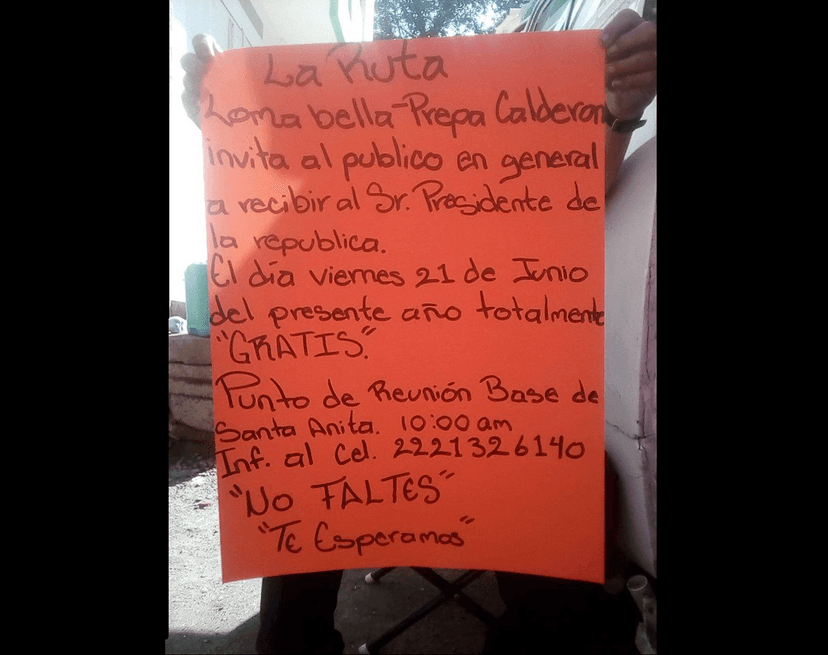 La Ruta
Loma bella-Prepa Calderon
invita al publico en general
a recibir al Sr. Presidente de
la republica.
El día viernes 21 de Junio
del presente año totalmente
"GRATIS."
Punto de Reunión Base de
Santa Anita. 10:00 am
Inf. al Cel. 2221326140
"No FALTES"
"Te Esperamos"